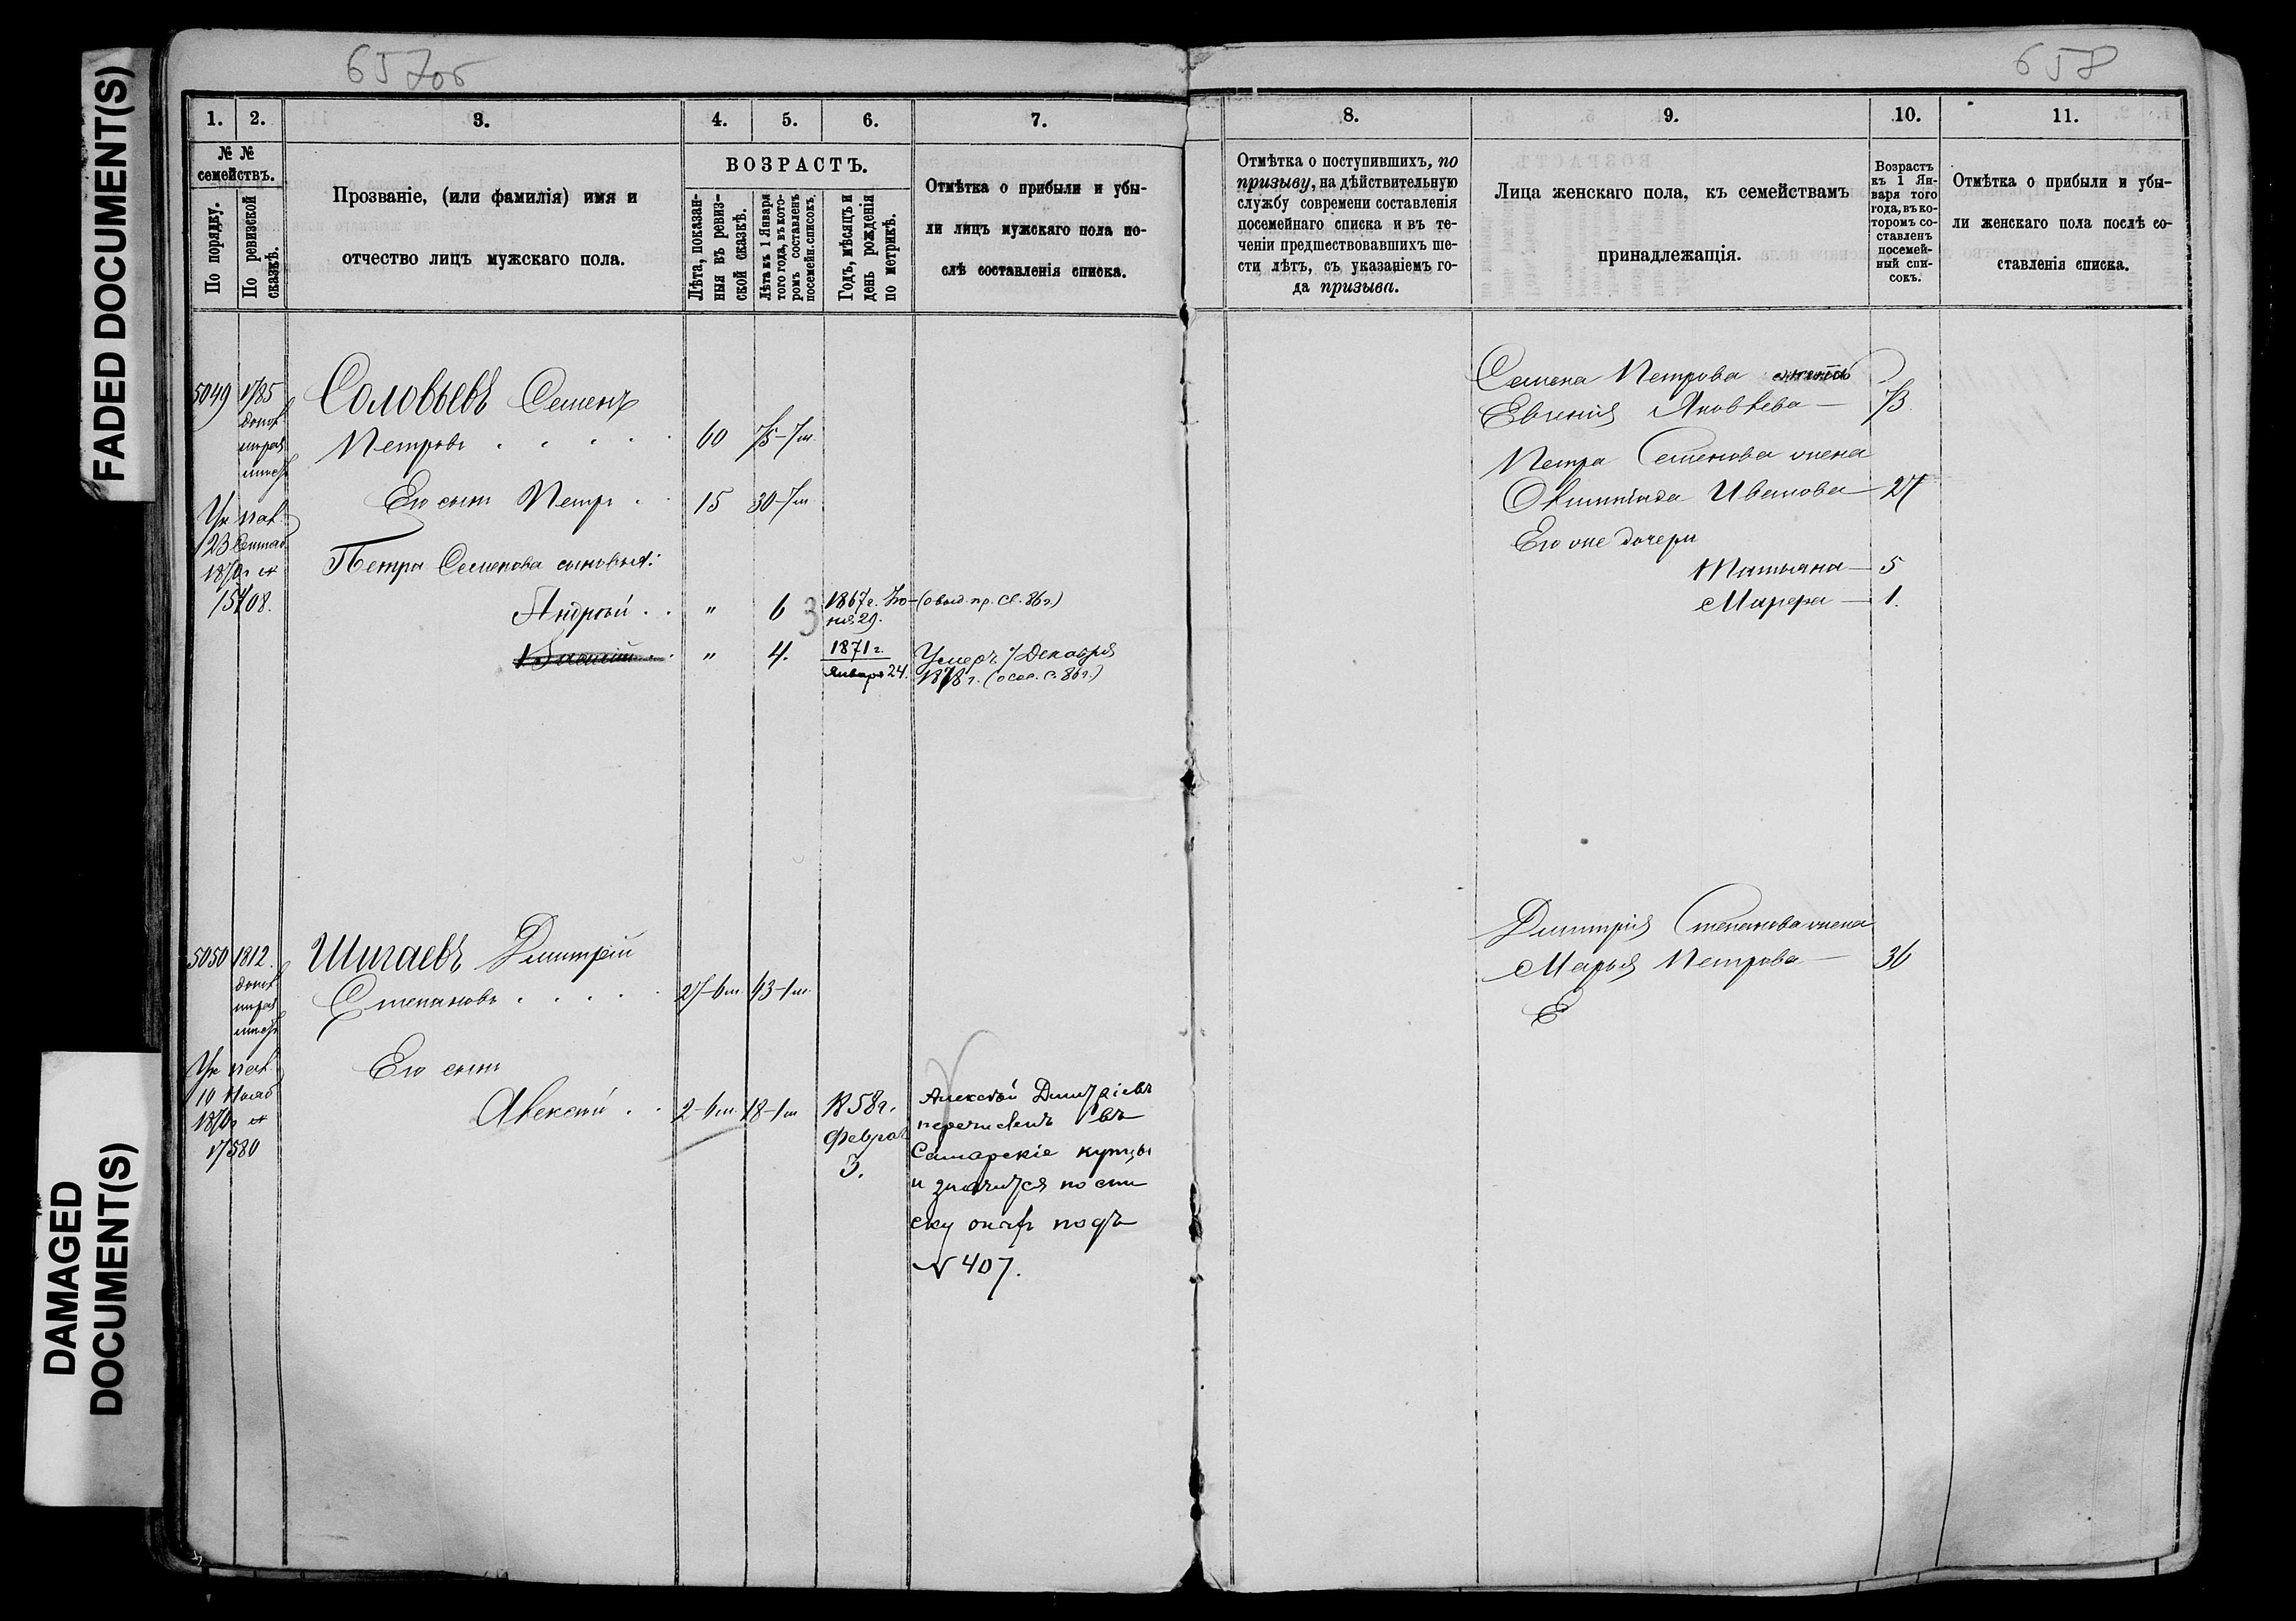 FADED DOCUMENT(S)
DAMAGED
DOCUMENT(S)
657об
1. 2. 3. 4. 5. 6. 7.
№ №
семействъ.
По порядку.
По ревизской
сказкѣ.
Прозваніе, (или фамилія) имя и
отчество лицъ мужскаго пола.
ВОЗРАСТЪ.
Лѣта, показан-
ныя въ ревиз-
ской сказкѣ.
Лѣта къ 1 Января
того года, въ кото-
ромъ составленъ
посемейн. списокъ.
Годъ, мѣсяцъ и
день рожденія
по метрикѣ.
Отмѣтка о прибыли и убы-
ли лицъ мужскаго пола по-
слѣ составленія списка.
5049 1785 Соловьевъ Семенъ
Петровъ . . . . . 60 75-7м
Его сынъ Петръ . . 15 30-7м
Ук. пал.
23 Сентяб.
1870г. №
15708.
Петра Семенова сыновья:
Андрей . . " 6 3 1867г. Iю-
ня 29.
" 4. 1871г.
Января 24.
Умеръ 7 Декабря
1878г.
5050 1812. Шигаевъ Дмитрій
Степановъ . . . . . 27-6м 43-1м
Ук. пал.
10 Нояб
1870г. №
17580
Его сынъ
Алексѣй . . 2-6м 18-1м 1858г.
Феврал
3.
Алексѣй Дмитріевъ
перечисленъ въ
Самарскіе купцы
и значится по спи
ску онаго подъ
№ 407.
658
8. 9. 10. 11.
Отмѣтка о поступившихъ, по
призыву, на дѣйствительную
службу современи составленія
посемейнаго списка и въ те-
ченіи предшествовавшихъ ше-
сти лѣтъ, съ указаніемъ го-
да призыва.
Лица женскаго пола, къ семействамъ
принадлежащія.
Возрастъ
къ 1 Ян-
варя того
года, въ ко-
торомъ со-
ставленъ
посемей-
ный спи-
сокъ.
Отмѣтка о прибыли и убы-
ли женскаго пола послѣ со-
ставленія списка.
Семена Петрова
Евгенія Яковлева — 73
Петра Семенова жена
Олимпіада Иванова — 27
Его же дочери
Татьяна — 5
Марфа — 1.
Дмитрія Степанова жена
Марья Петрова — 36
Е